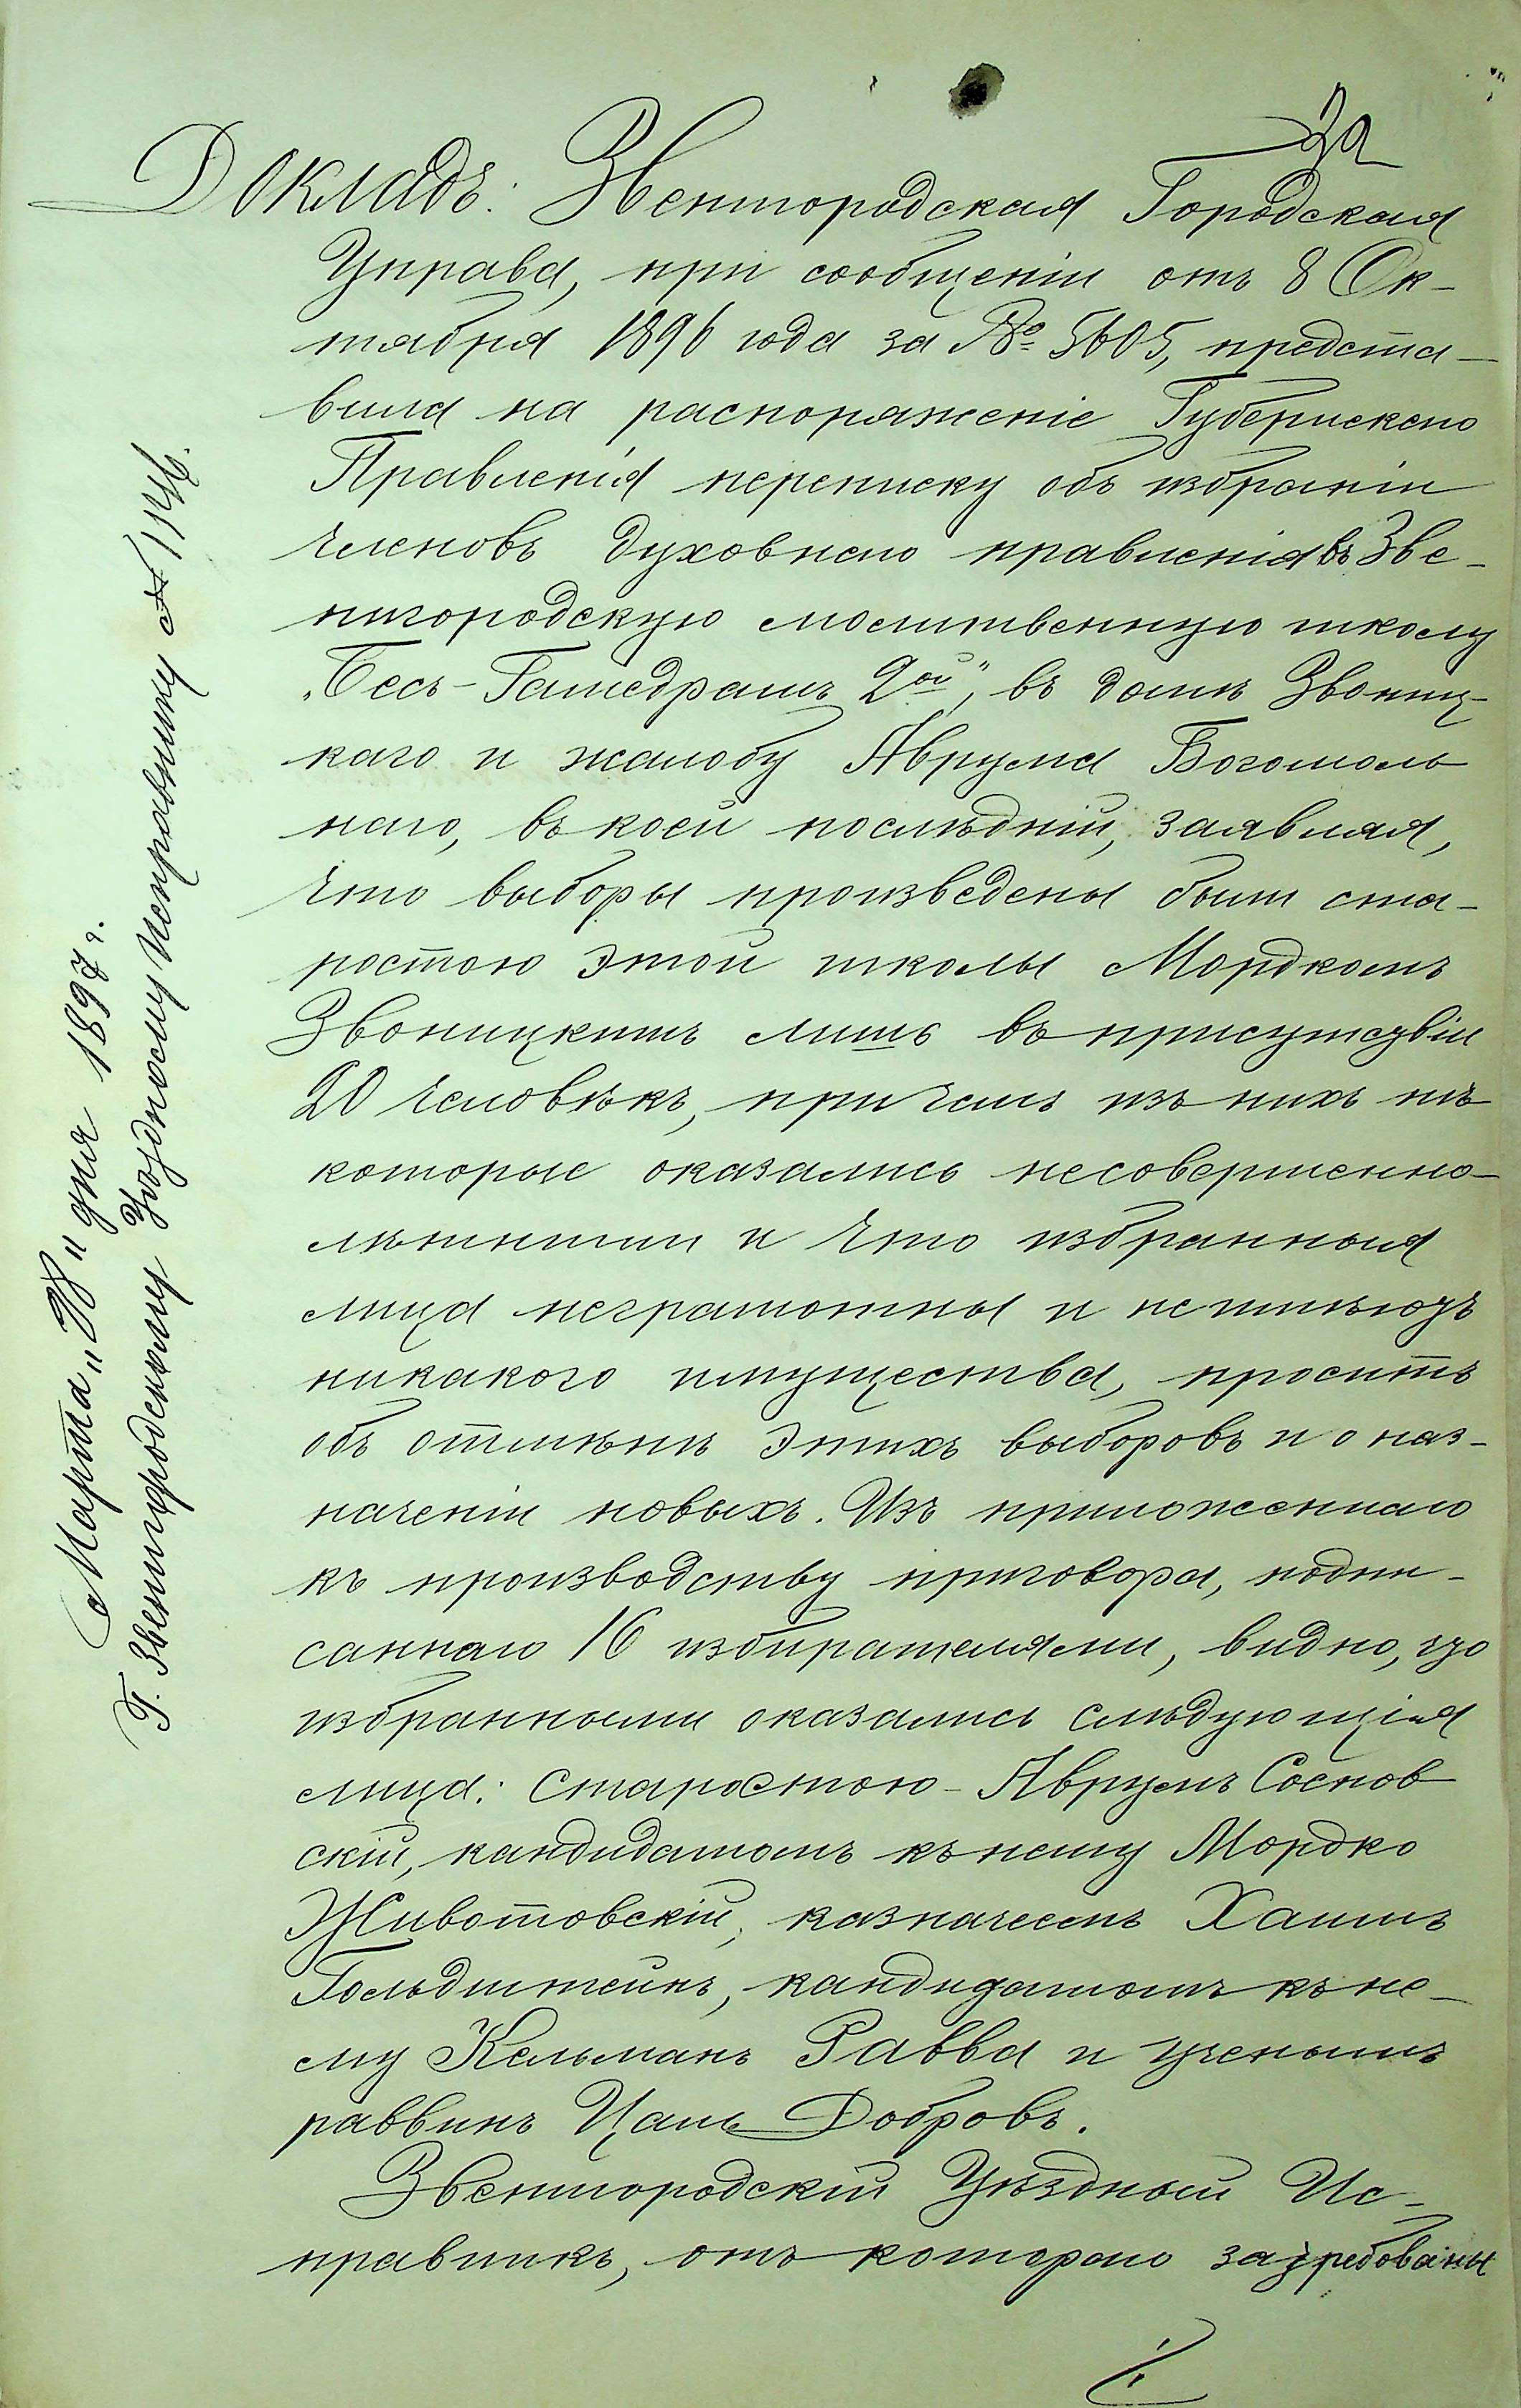 Докладъ: Звенигородская Городская
Управа, при сообщеніи отъ 8 Ок-
тября 1896 года за № 5605, предста-
вила на распоряженіе Губернскаго
Правленія переписку объ избраніи
членовъ духовнаго правленія въ Зве-
нигородскую молитвенную школу
„Бесъ-Гамедрашъ 2ой", въ домѣ Звониц-
каго и жалобу Аврума Богомоль
наго, въ коей послѣдній, заявляя,
что выборы произведены были ста-
ростою этой школы Мордкомъ
Звоницкимъ лишь въ присутствіи
20 человѣкъ, при чемъ изъ нихъ нѣ
которые оказались несовершенно-
лѣтними и что избранныя
лица неграмотны и не имѣютъ
никакого имущества, проситъ
объ отмѣнѣ этихъ выборовъ и о наз-
наченіи новыхъ. Изъ приложеннаго
къ производству приговора, подпи-
саннаго 16 избирателями, видно, что
избранными оказались слѣдующія
лица: старостою - Аврумъ Соснов
скій, кандидатомъ къ нему Мордко
Животовскій, казначеемъ Хаимъ
Гольдштейнъ, кандидатомъ къ не-
му Кельманъ Равва и ученымъ
раввинъ Цаль Добровъ.
Звенигородскій Уѣздный Ис-
правникъ, отъ котораго затребованы
Марта „ " дня 1897 г.
Г. Звенигородскому Уѣздному Исправнику